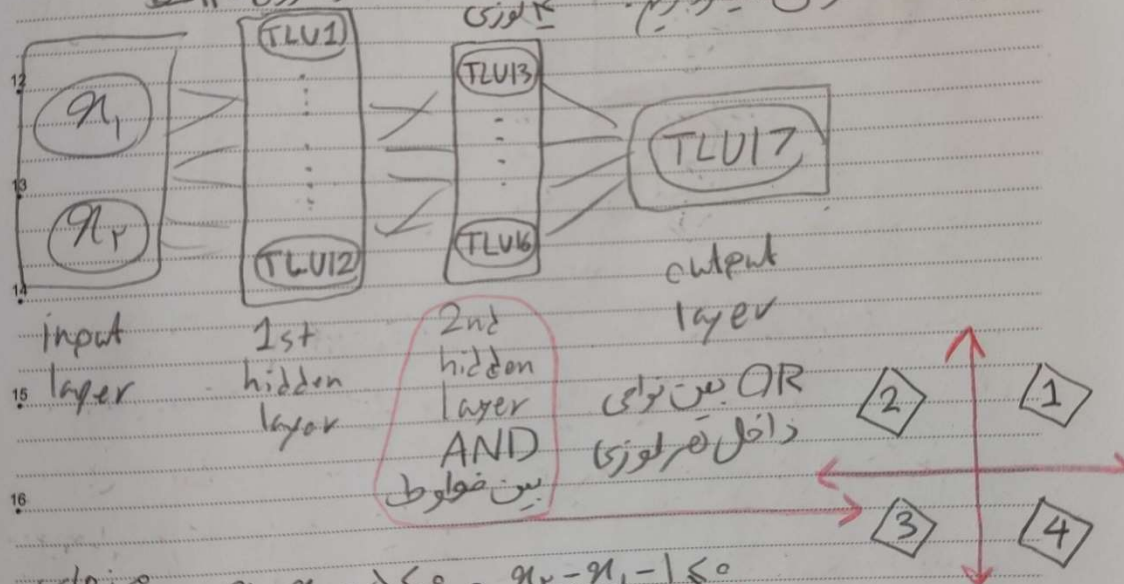 ۴ لوزی
12
13
14
15
16
x₁
x₂
TLU1
TLU12
TLU13
TLU16
TLU17
input
layer
1st
hidden
layer
2nd
hidden
layer
AND
بین خطوط
output
layer
OR بین نواحی
داخل هر لوزی
2
1
3
4